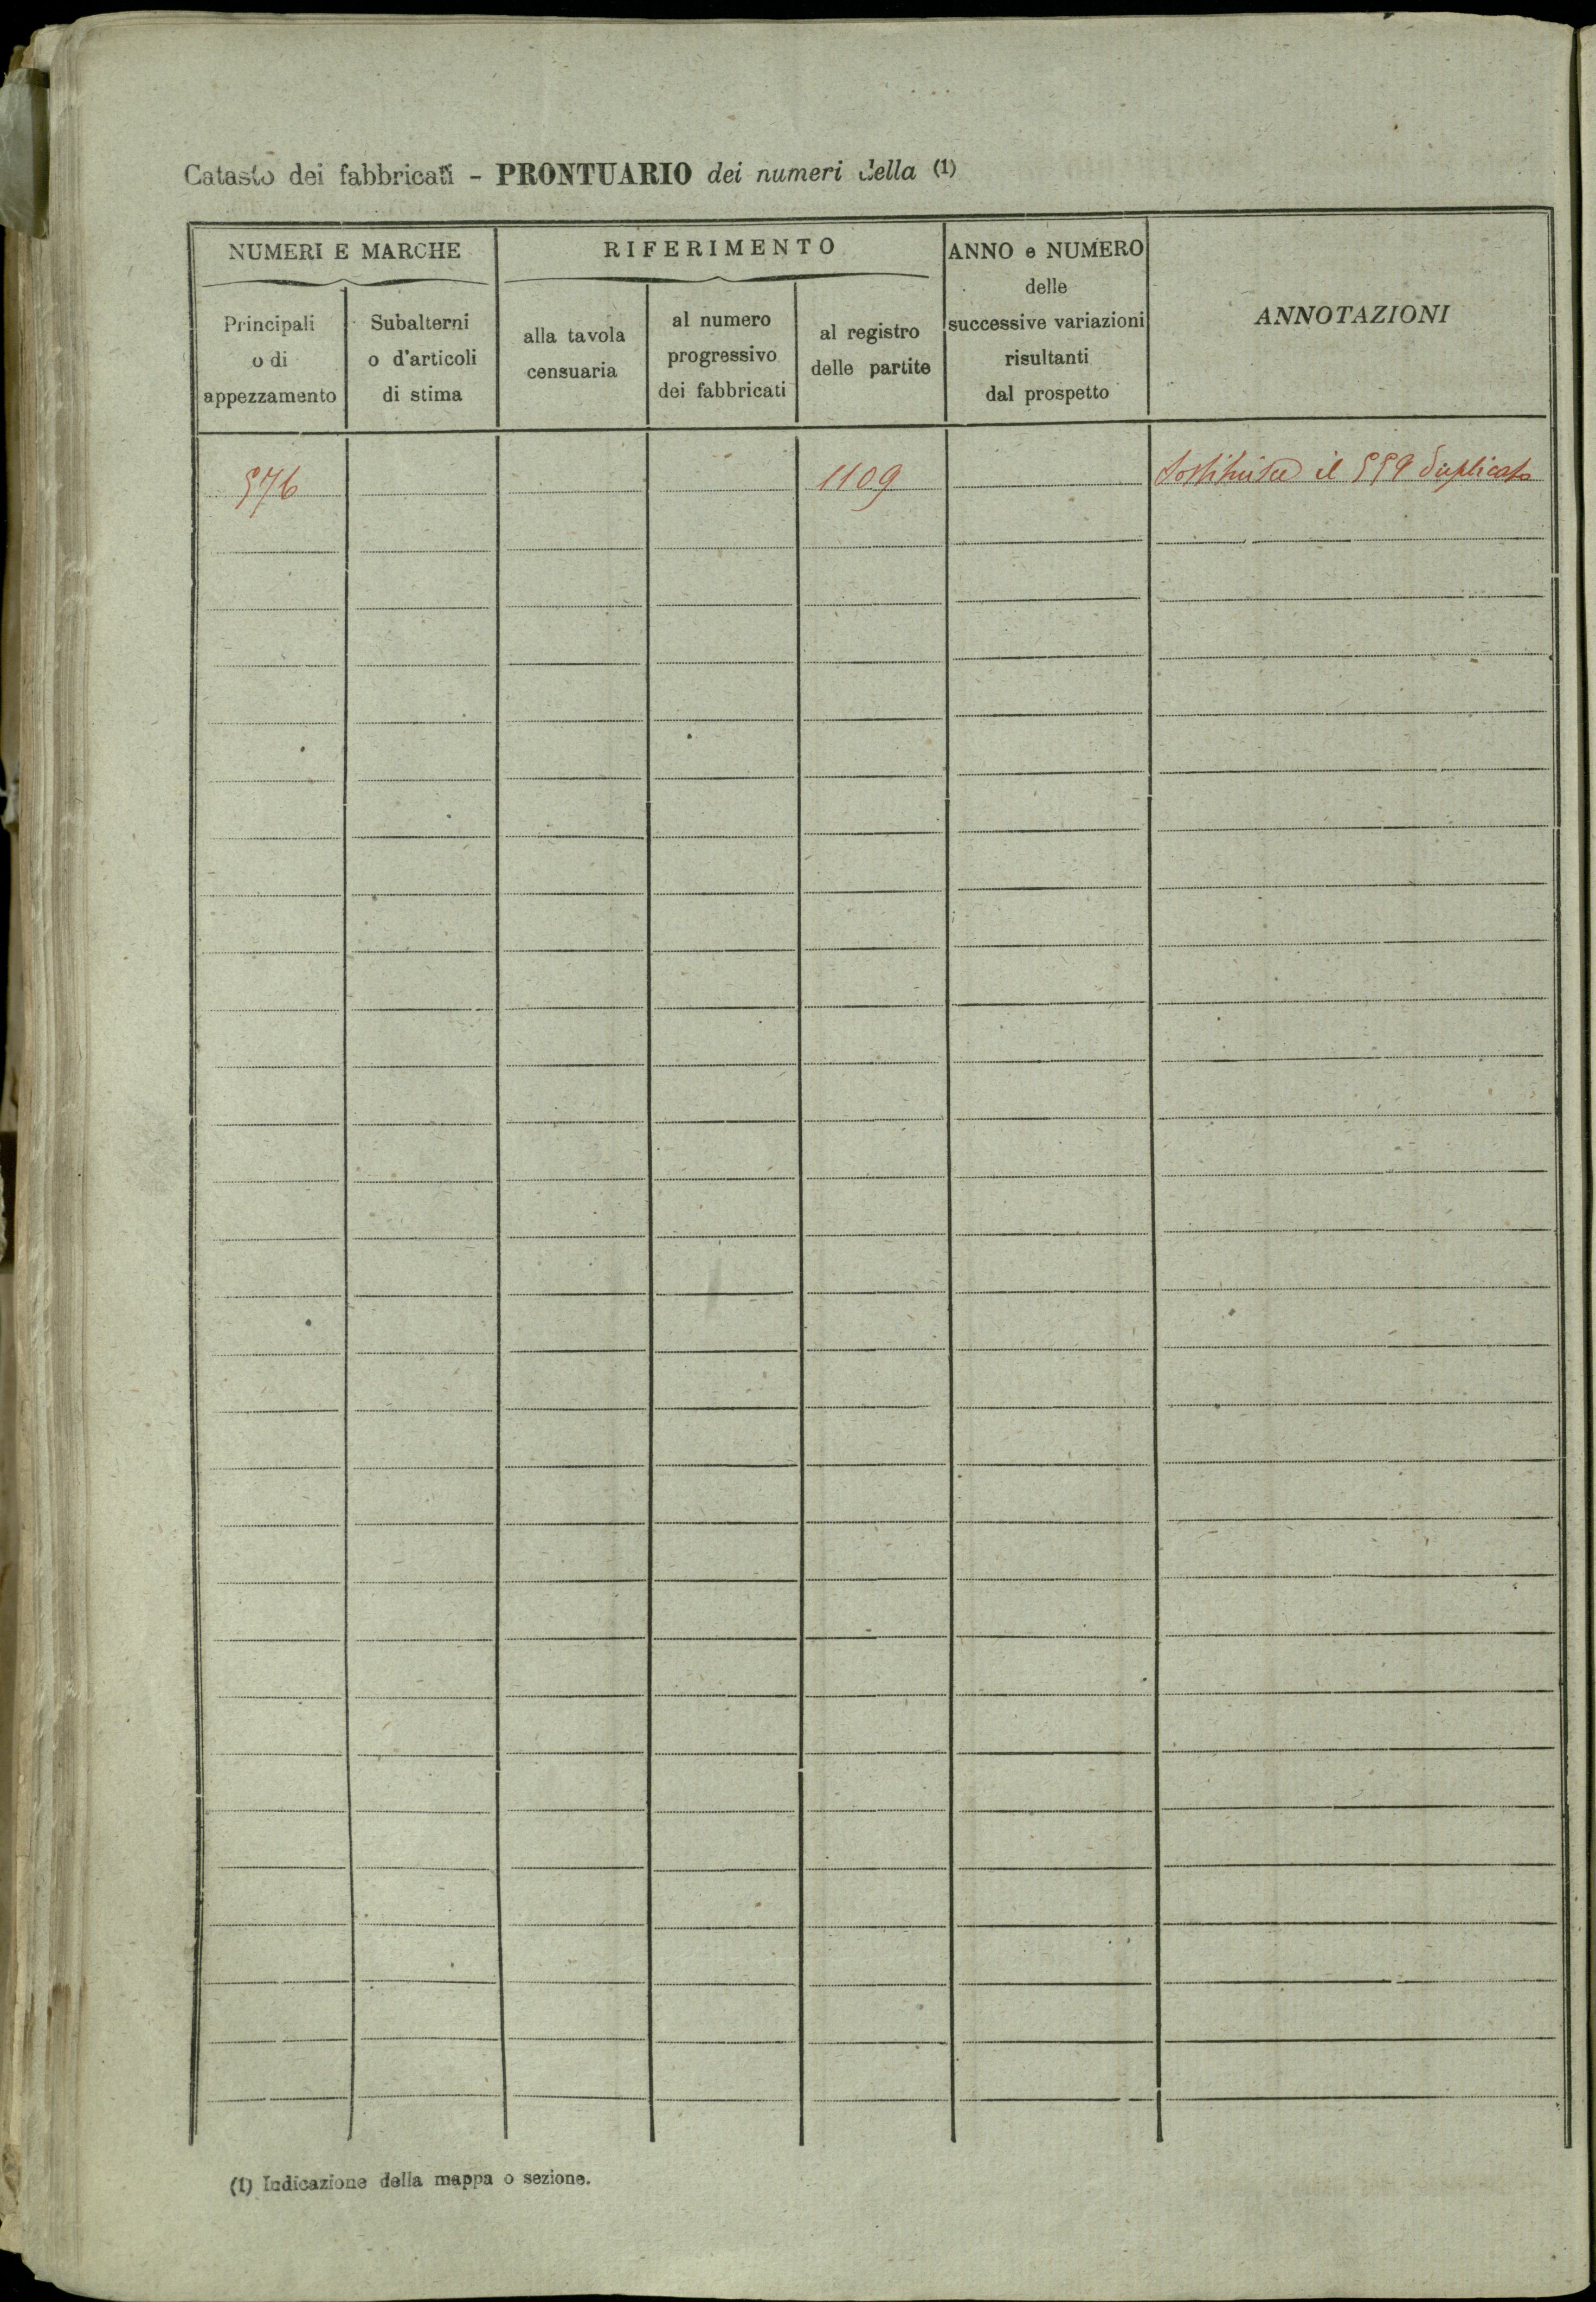 Catasto dei fabbricati - PRONTUARIO dei numeri della (1)
NUMERI E MARCHE
RIFERIMENTO
ANNO e NUMERO
delle
successive variazioni
risultanti
dal prospetto
ANNOTAZIONI
Principali
o di
appezzamento
Subalterni
o d'articoli
di stima
alla tavola
censuaria
al numero
progressivo
dei fabbricati
al registro
delle partite
576 1109 il 559 duplicato
(1) Indicazione della mappa o sezione.